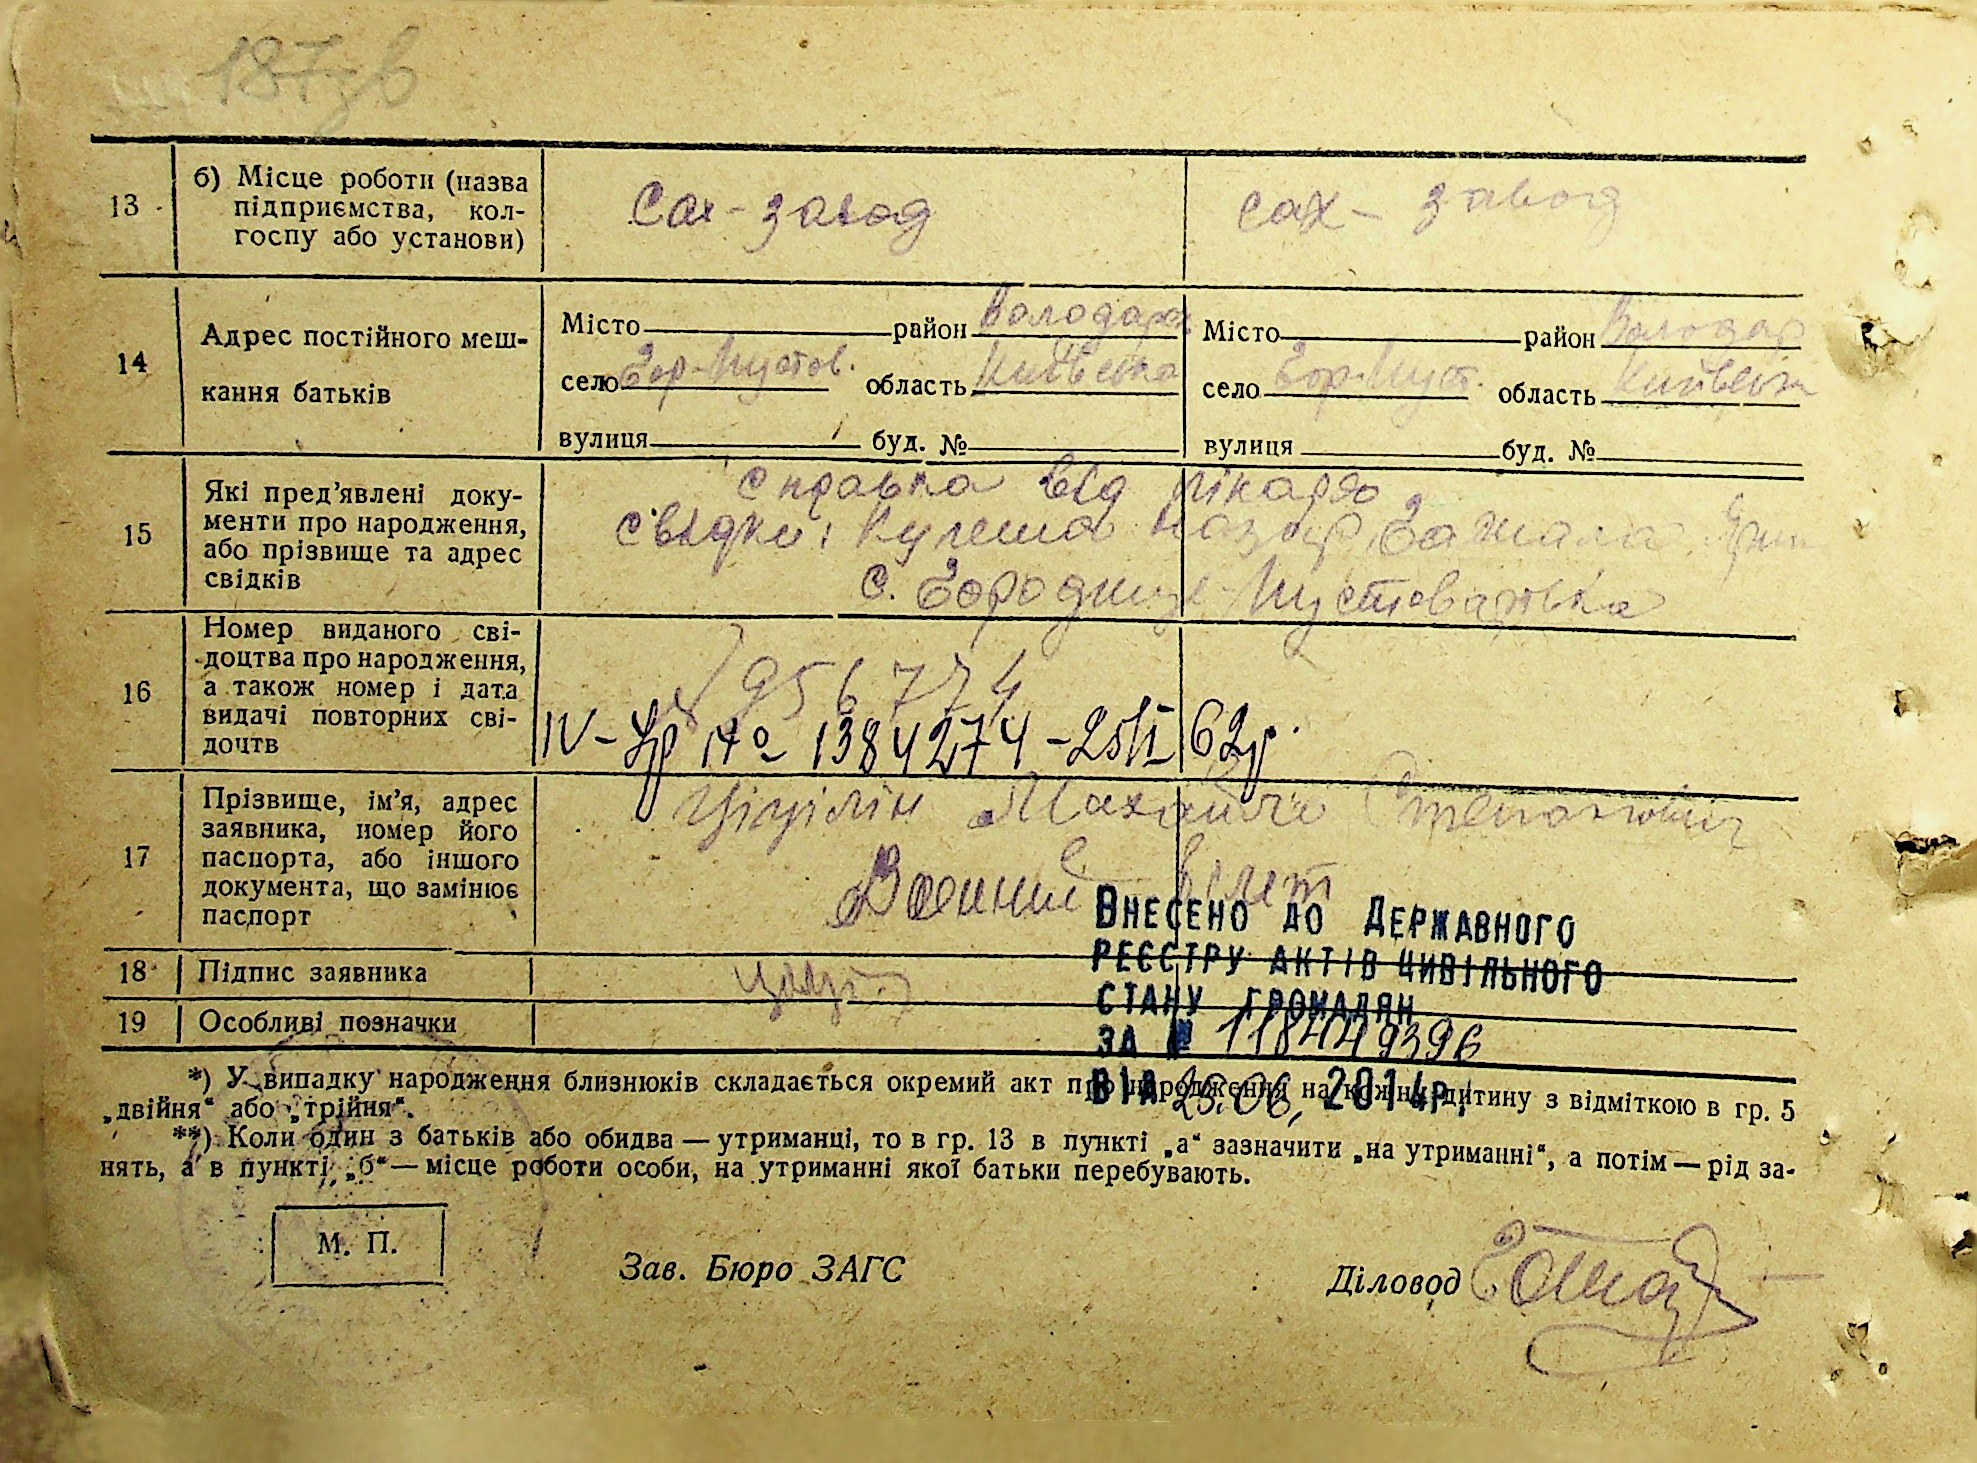 187зв
13
б) Місце роботи (назва
підприємства, кол-
госпу або установи)
Сах-завод
сах-завод
14
Адрес постійного меш-
кання батьків
Місто район Володарськ
село Гор-Пустов. область Київська
вулиця буд. №
Місто район Володар
село Гор-Пуст. область Київськ
вулиця буд. №
15
Які пред'явлені доку-
менти про народження,
або прізвище та адрес
свідків
справка від лікаря
свідки: Кулеша Назар,
с. Городище-Пустоварівка
16
Номер виданого сві-
доцтва про народження,
а також номер і дата
видачі повторних сві-
доцтв
956774
IV-Ур № 1384274-25/ 62р.
17
Прізвище, ім'я, адрес
заявника, номер його
паспорта, або іншого
документа, що замінює
паспорт
Михайло Степанович
Воєнний білет
18
Підпис заявника
19
Особливі позначки
Внесено до Державного
реєстру актів цивільного
стану громадян
за № 118449396
від 25.06. 2014р.
*) У випадку народження близнюків складається окремий акт про народження на кожну дитину з відміткою в гр. 5
„двійня" або „трійня".
**) Коли один з батьків або обидва — утриманці, то в гр. 13 в пункті „а" зазначити „на утриманні", а потім — рід за-
нять, а в пункті „б" — місце роботи особи, на утриманні якої батьки перебувають.
М. П.
Зав. Бюро ЗАГС
Діловод